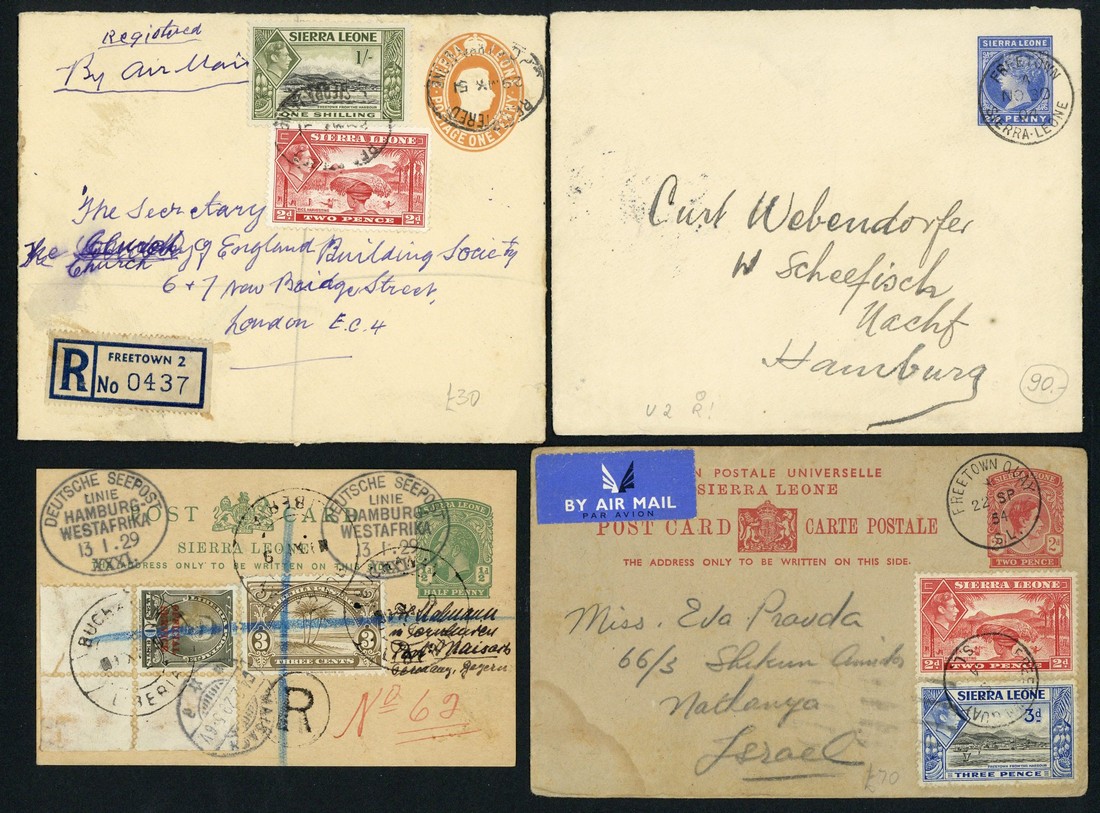 Registered
By Air Mail
SIERRA LEONE
1/-
FREETOWN FROM THE HARBOUR
ONE SHILLING
SIERRA LEONE
POSTAGE ONE PENNY
SIERRA LEONE
2d
RICE HARVESTING
2d
TWO PENCE
The Secretary
The Church of England Building Society
6 + 7 New Bridge Street,
London E.C.4
R
FREETOWN 2
No 0437
£30
SIERRA LEONE
PENNY
FREETOWN
NO 30
SIERRA-LEONE
Curt Webendorfer
Scheelfisch
Nachf
Hamburg
90.-
DEUTSCHE SEEPOST
LINIE
HAMBURG-
WESTAFRIKA
13.1.29
XXXI
DEUTSCHE SEEPOST
LINIE
HAMBURG
WESTAFRIKA
13.1.29
POST CARD
SIERRA LEONE
ADDRESS ONLY TO BE WRITTEN ON THIS SIDE.
½d
½d
HALF PENNY
3
3
THREE CENTS
R
No 62
Germany, Bayern
BY AIR MAIL
PAR AVION
N POSTALE UNIVERSELLE
SIERRA LEONE
POST CARD
CARTE POSTALE
THE ADDRESS ONLY TO BE WRITTEN ON THIS SIDE.
2d
TWO PENCE
FREETOWN QUAY
22 SP
54
S.L.
Miss. Eva Pravda
66/3 Shikun
Nathanya
Israel
SIERRA LEONE
2d
2d
TWO PENCE
SIERRA LEONE
3d
FREETOWN FROM THE HARBOUR
THREE PENCE
£70